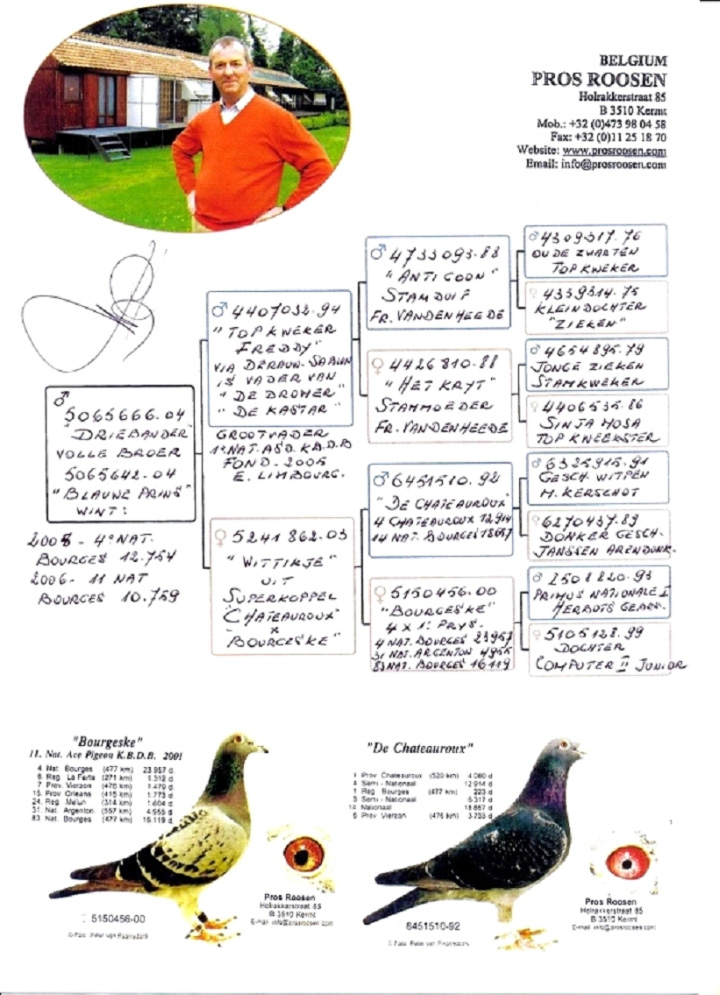 BELGIUM
PROS ROOSEN
Holrakkerstraat 85
B 3510 Kermt
Mob.: +32 (0)473 98 04 58
Fax: +32 (0)11 25 18 70
Website: www.prosroosen.com
Email: info@prosroosen.com
♂ 5065666.04
"DRIEBANDER"
VOLLE BROER
5065642.04
"BLAUWE PRINS"
WINT:
4° NAT.
BOURGES 12.754
2006 - 11 NAT
BOURGES 10.759
♂ 4407032.94
"TOPKWEKER
FREDDY"
VIA
IS VADER VAN
"DE DROMER"
"DE KASTAR"
GROOTVADER
1° NAT. ASD. K.B.D.B
FOND - 2005
E. LIMBOURG.
♀ 5241862.03
"WITTIKJE"
UIT
SUPERKOPPEL
"CHATEAUROUX"
x
BOURGESKE"
♂ 4733093.83
"ANTIGOON"
STAMDUIF
FR. VANDENHEEDE
♀ 4426810.88
"HET KRYT"
STAMMOEDER
FR. VANDENHEEDE
♂ 6451510.92
"DE CHATEAUROUX"
4 CHATEAUROUX 12.914
14 NAT. BOURGES 18657
♀ 5150456.00
"BOURGESKE"
4 x 1° PRYS.
4 NAT. BOURGES 23957
31 NAT. ARGENTON 4955
83 NAT. BOURGES 16119
♂ 4309317.76
OUDE ZWARTEN
TOPKWEKER
♀ 4339314.75
KLEINDOCHTER
"ZIEKEN"
♂ 4654895.79
JONGE ZIEKEN
STAMKWEKER
♀ 4406535.86
SINJA MOSA
TOP KWEEKSTER
♂ 6325915.91
GESCH. WITPEN
M. KERSCHOT
♀ 6270437.89
DONKER GESCH.
JANSSEN ARENDONK.
♂ 2508820.93
PRIMUS NATIONALE I
HERBOTS GEBRS.
♀ 5105128.99
DOCHTER
COMPUTER II JUNIOR
"Bourgeske"
11. Nat. Ace Pigeon K.B.D.B. 2001
4. Nat. Bourges (477 km) 23 957 d.
6. Reg. La Ferte (271 km) 1.312 d.
7. Prov. Vierzon (476 km) 3.470 d.
15. Prov. Orleans (415 km) 1.773 d.
24. Reg. Melun (314 km) 1.604 d.
31. Nat. Argenton (557 km) 4.955 d.
83. Nat. Bourges (477 km) 16.119 d.
5150456-00
Pros Roosen
Holrakkerstraat 85
B 3510 Kermt
E-mail: info@prosroosen.com
"De Chateauroux"
1 Prov Chateauroux (520 km) 4.060 d.
4 Semi - Nationaal 12.914 d.
1 Reg Bourges (477 km) 223 d.
3 Semi - Nationaal 5.317 d.
14 Nationaal 18.657 d.
6 Prov Vierzon (476 km) 3.733 d.
6451510-92
Pros Roosen
Holrakkerstraat 85
B 3510 Kermt
E-mail: info@prosroosen.com